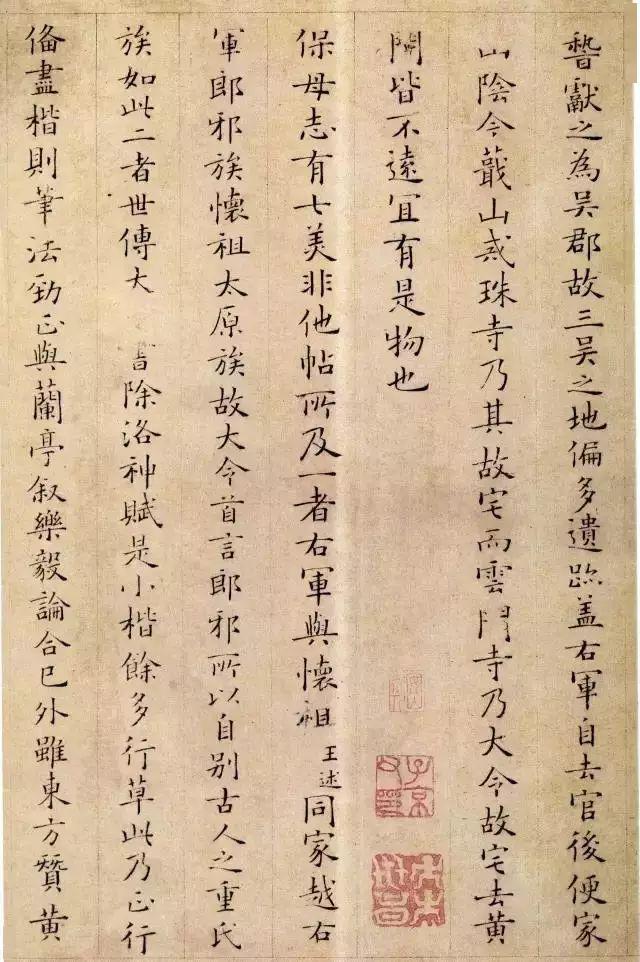 獻之為吳郡故三吳之地偏多遺跡蓋右軍自去官後便家
山陰今蕺山戒珠寺乃其故宅而雲門寺乃大令故宅去黃
閍皆不遠宜有是物也
保母志有七美非他帖所及一者右軍與懷祖王述同家越右
軍郎邪族懷祖太原族故大令首言郎邪所以自别古人之重氏
族如此二者世傳大書除洛神賦是小楷餘多行草此乃正行
俻盡楷則筆法勁正與蘭亭叙樂毅論合已外雖東方贊黃
子京父印